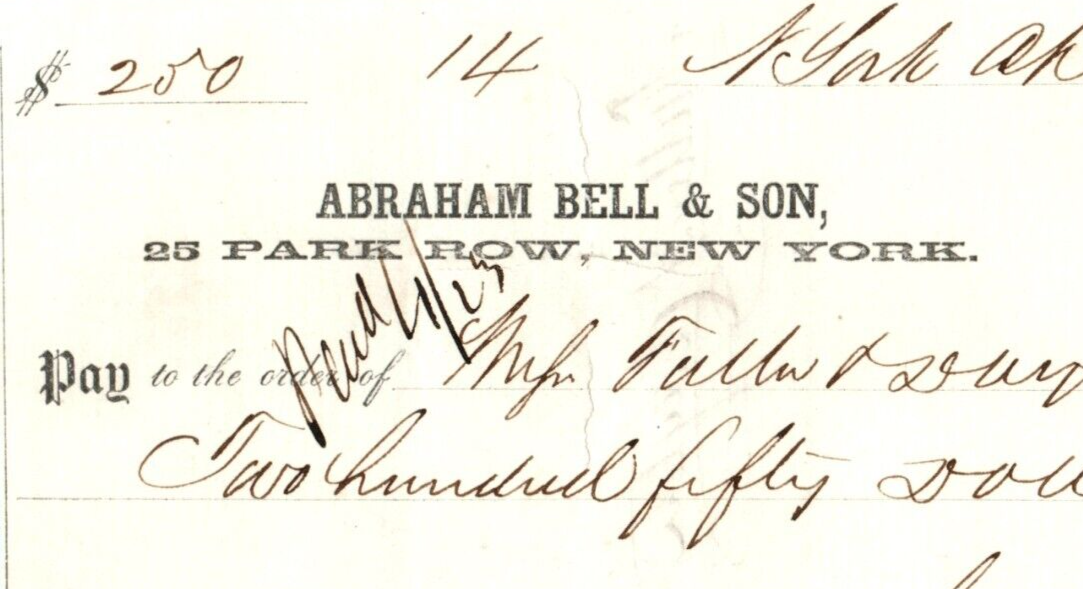 $ 250 14 N York
ABRAHAM BELL & SON,
25 PARK ROW, NEW YORK.
Pay to the order of Fuller &
Two hundred fifty Doll